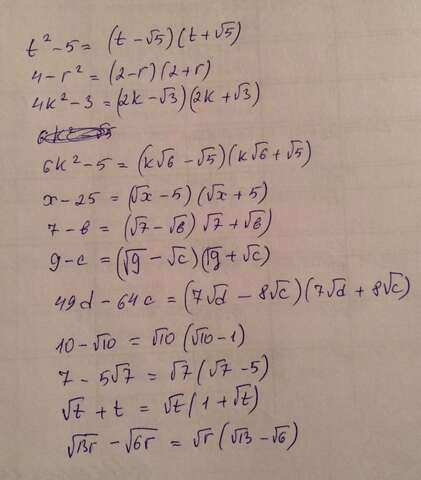 t² - 5 = (t - √5)(t + √5)
4 - r² = (2 - r)(2 + r)
4k² - 3 = (2k - √3)(2k + √3)
6k² - 5 = (k√6 - √5)(k√6 + √5)
x - 25 = (√x - 5)(√x + 5)
7 - в = (√7 - √в) √7 + √в)
g - c = (√g - √c)(√g + √c)
49d - 64c = (7√d - 8√c)(7√d + 8√c)
10 - √10 = √10 (√10 - 1)
7 - 5√7 = √7 (√7 - 5)
√t + t = √t (1 + √t)
√13r - √6r = √r (√13 - √6)